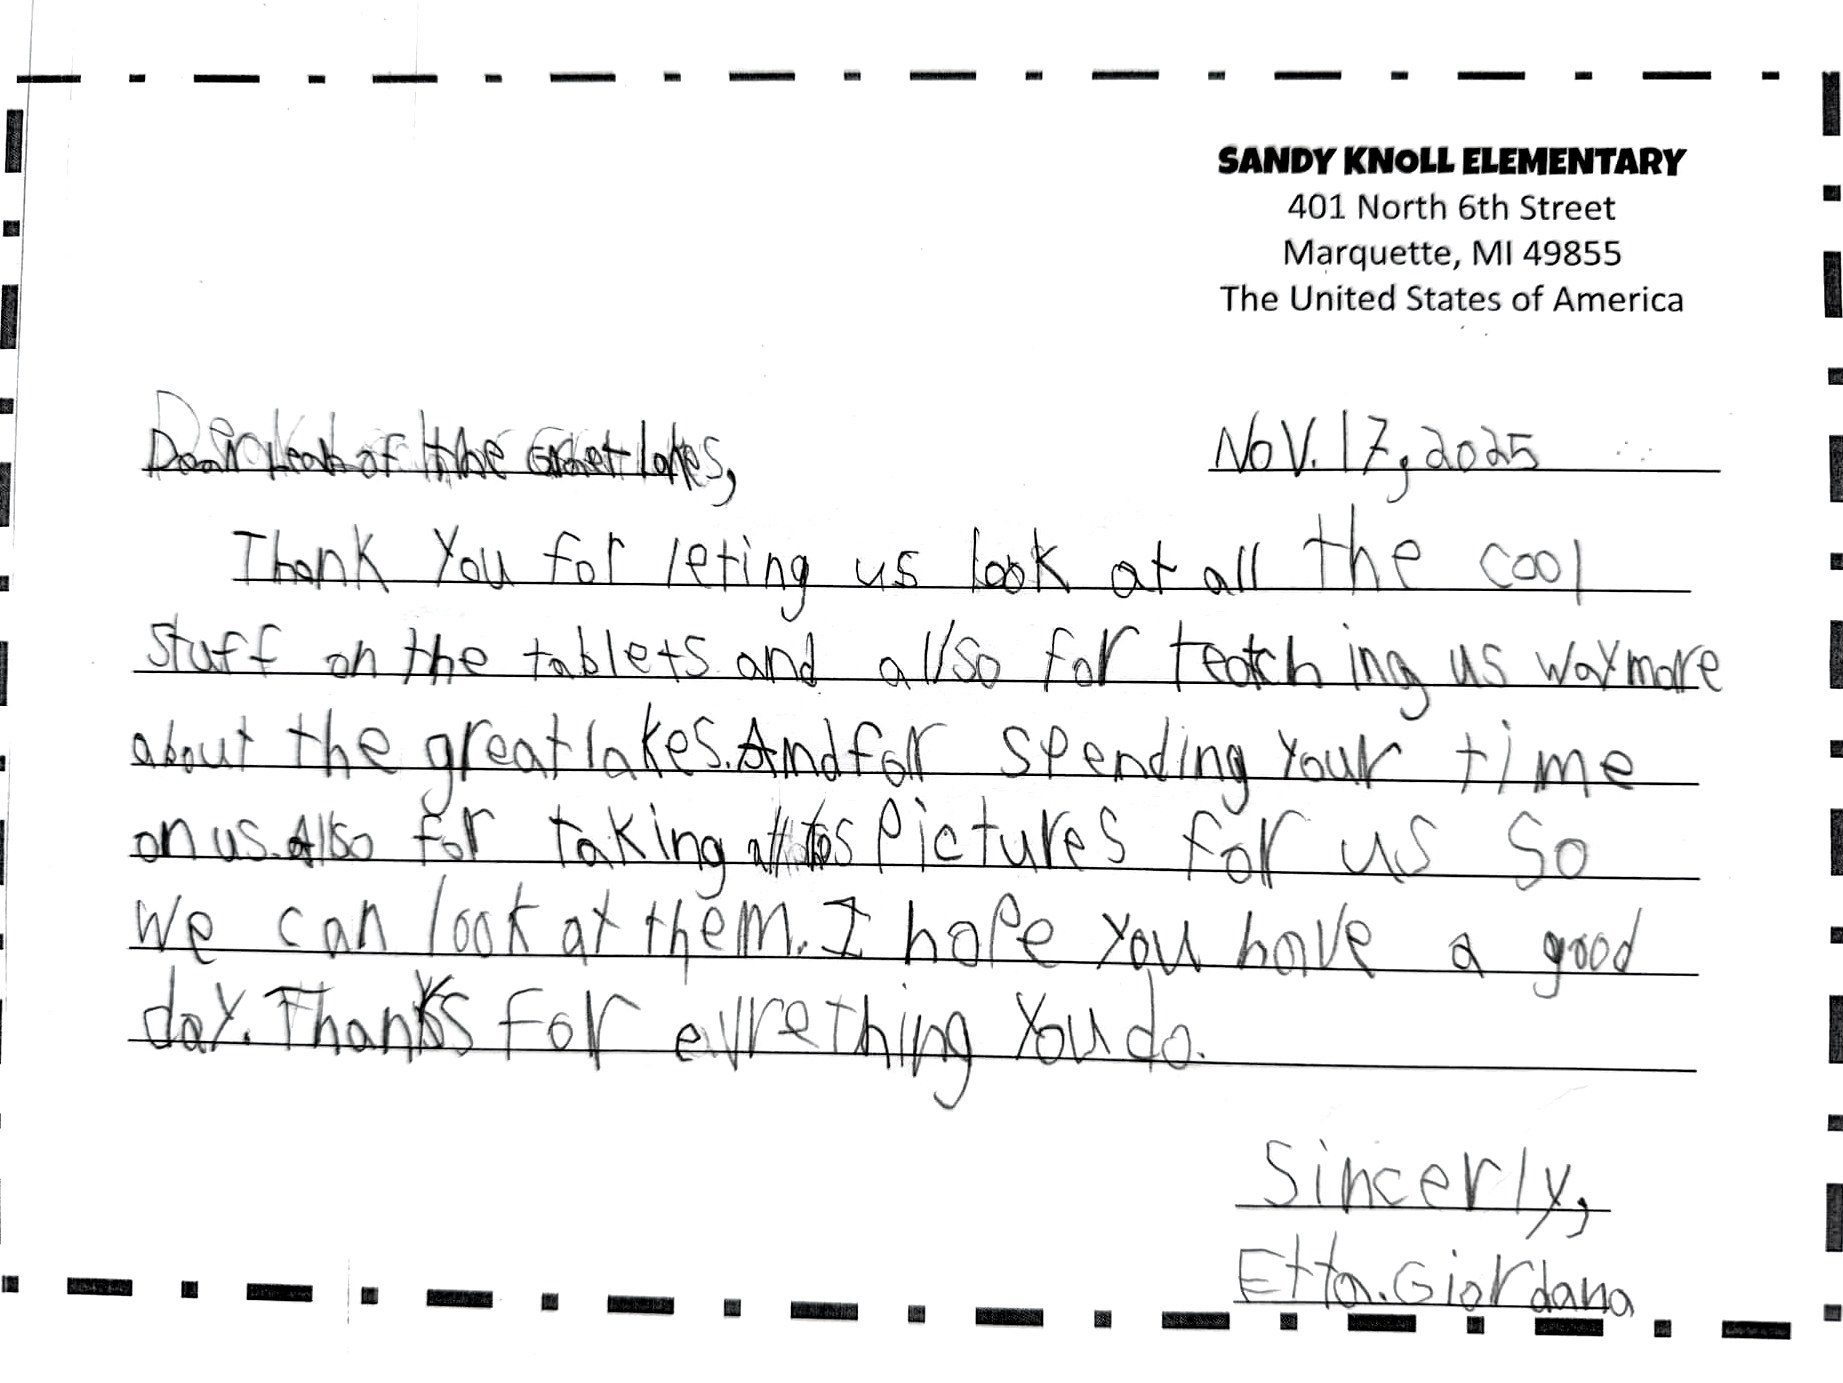 SANDY KNOLL ELEMENTARY
401 North 6th Street
Marquette, MI 49855
The United States of America
Dear of the Great lakes,
Nov. 17, 2025
Thank You for leting us look at all the cool
stuff on the tablets and allso for teatching us way more
about the great lakes. And for spending Your time
on us. Also for taking Pictures for us so
We can look at them. I hope you have a good
day. Thanks for evrething You do.
Sincerly,
Etta. Giordana